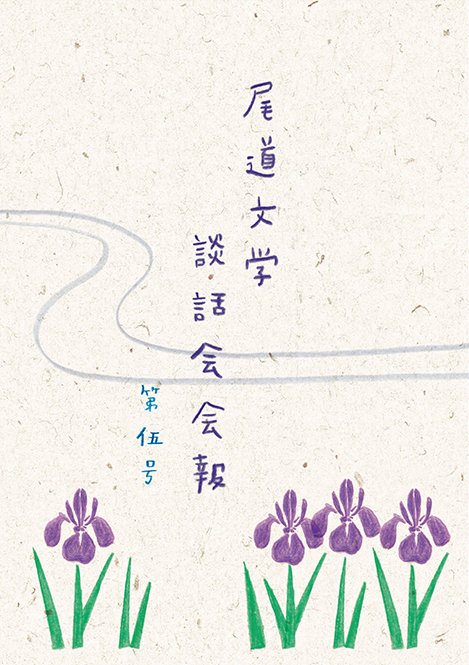 尾道文学
談話会会報
第伍号